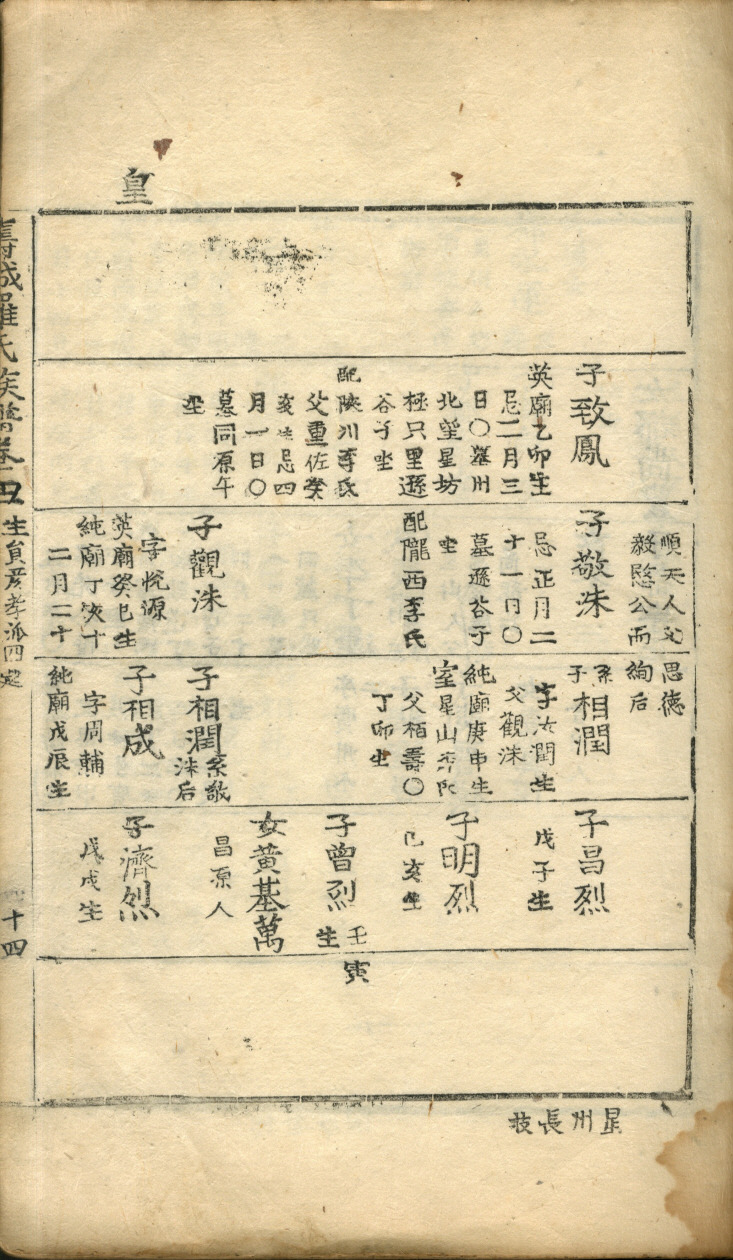 皇
子致鳳
英廟乙卯生
忌二月三
日〇墓州
北望星坊
極只里遯
谷子坐
配陝川李氏
父重佐癸
亥生忌四
月一日〇
墓同原午
坐
順天人父
毅愍公而
子敬洙
忌正月二
十一日〇
墓遯谷子
坐
配隴西李氏
子觀洙
字悅源
英廟癸巳生
純廟丁亥十
二月二十
思德
絢后
系子相潤
字汝潤生
父觀洙
純廟庚申生
室星山李氏
父栢壽〇
丁卯生
子相潤系敬洙后
子相成
字周輔
純廟戊辰生
子昌烈
戊子生
子明烈
己亥生
子曾烈
壬寅生
女黃基萬
昌原人
子濟烈
戊戌生
壽城羅氏族譜卷之四
生員彦孝派四
十四
星州長枝